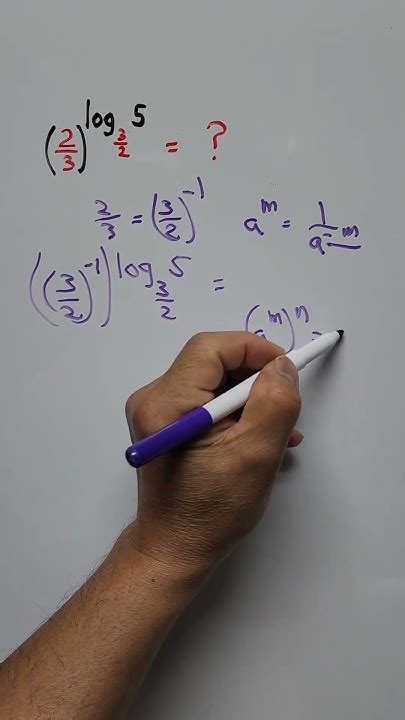 (2/3)^(log_(3/2) 5) = ?
2/3 = (3/2)^-1   a^m = 1/a^-m
((3/2)^-1)^(log_(3/2) 5) =
(a^m)^n =